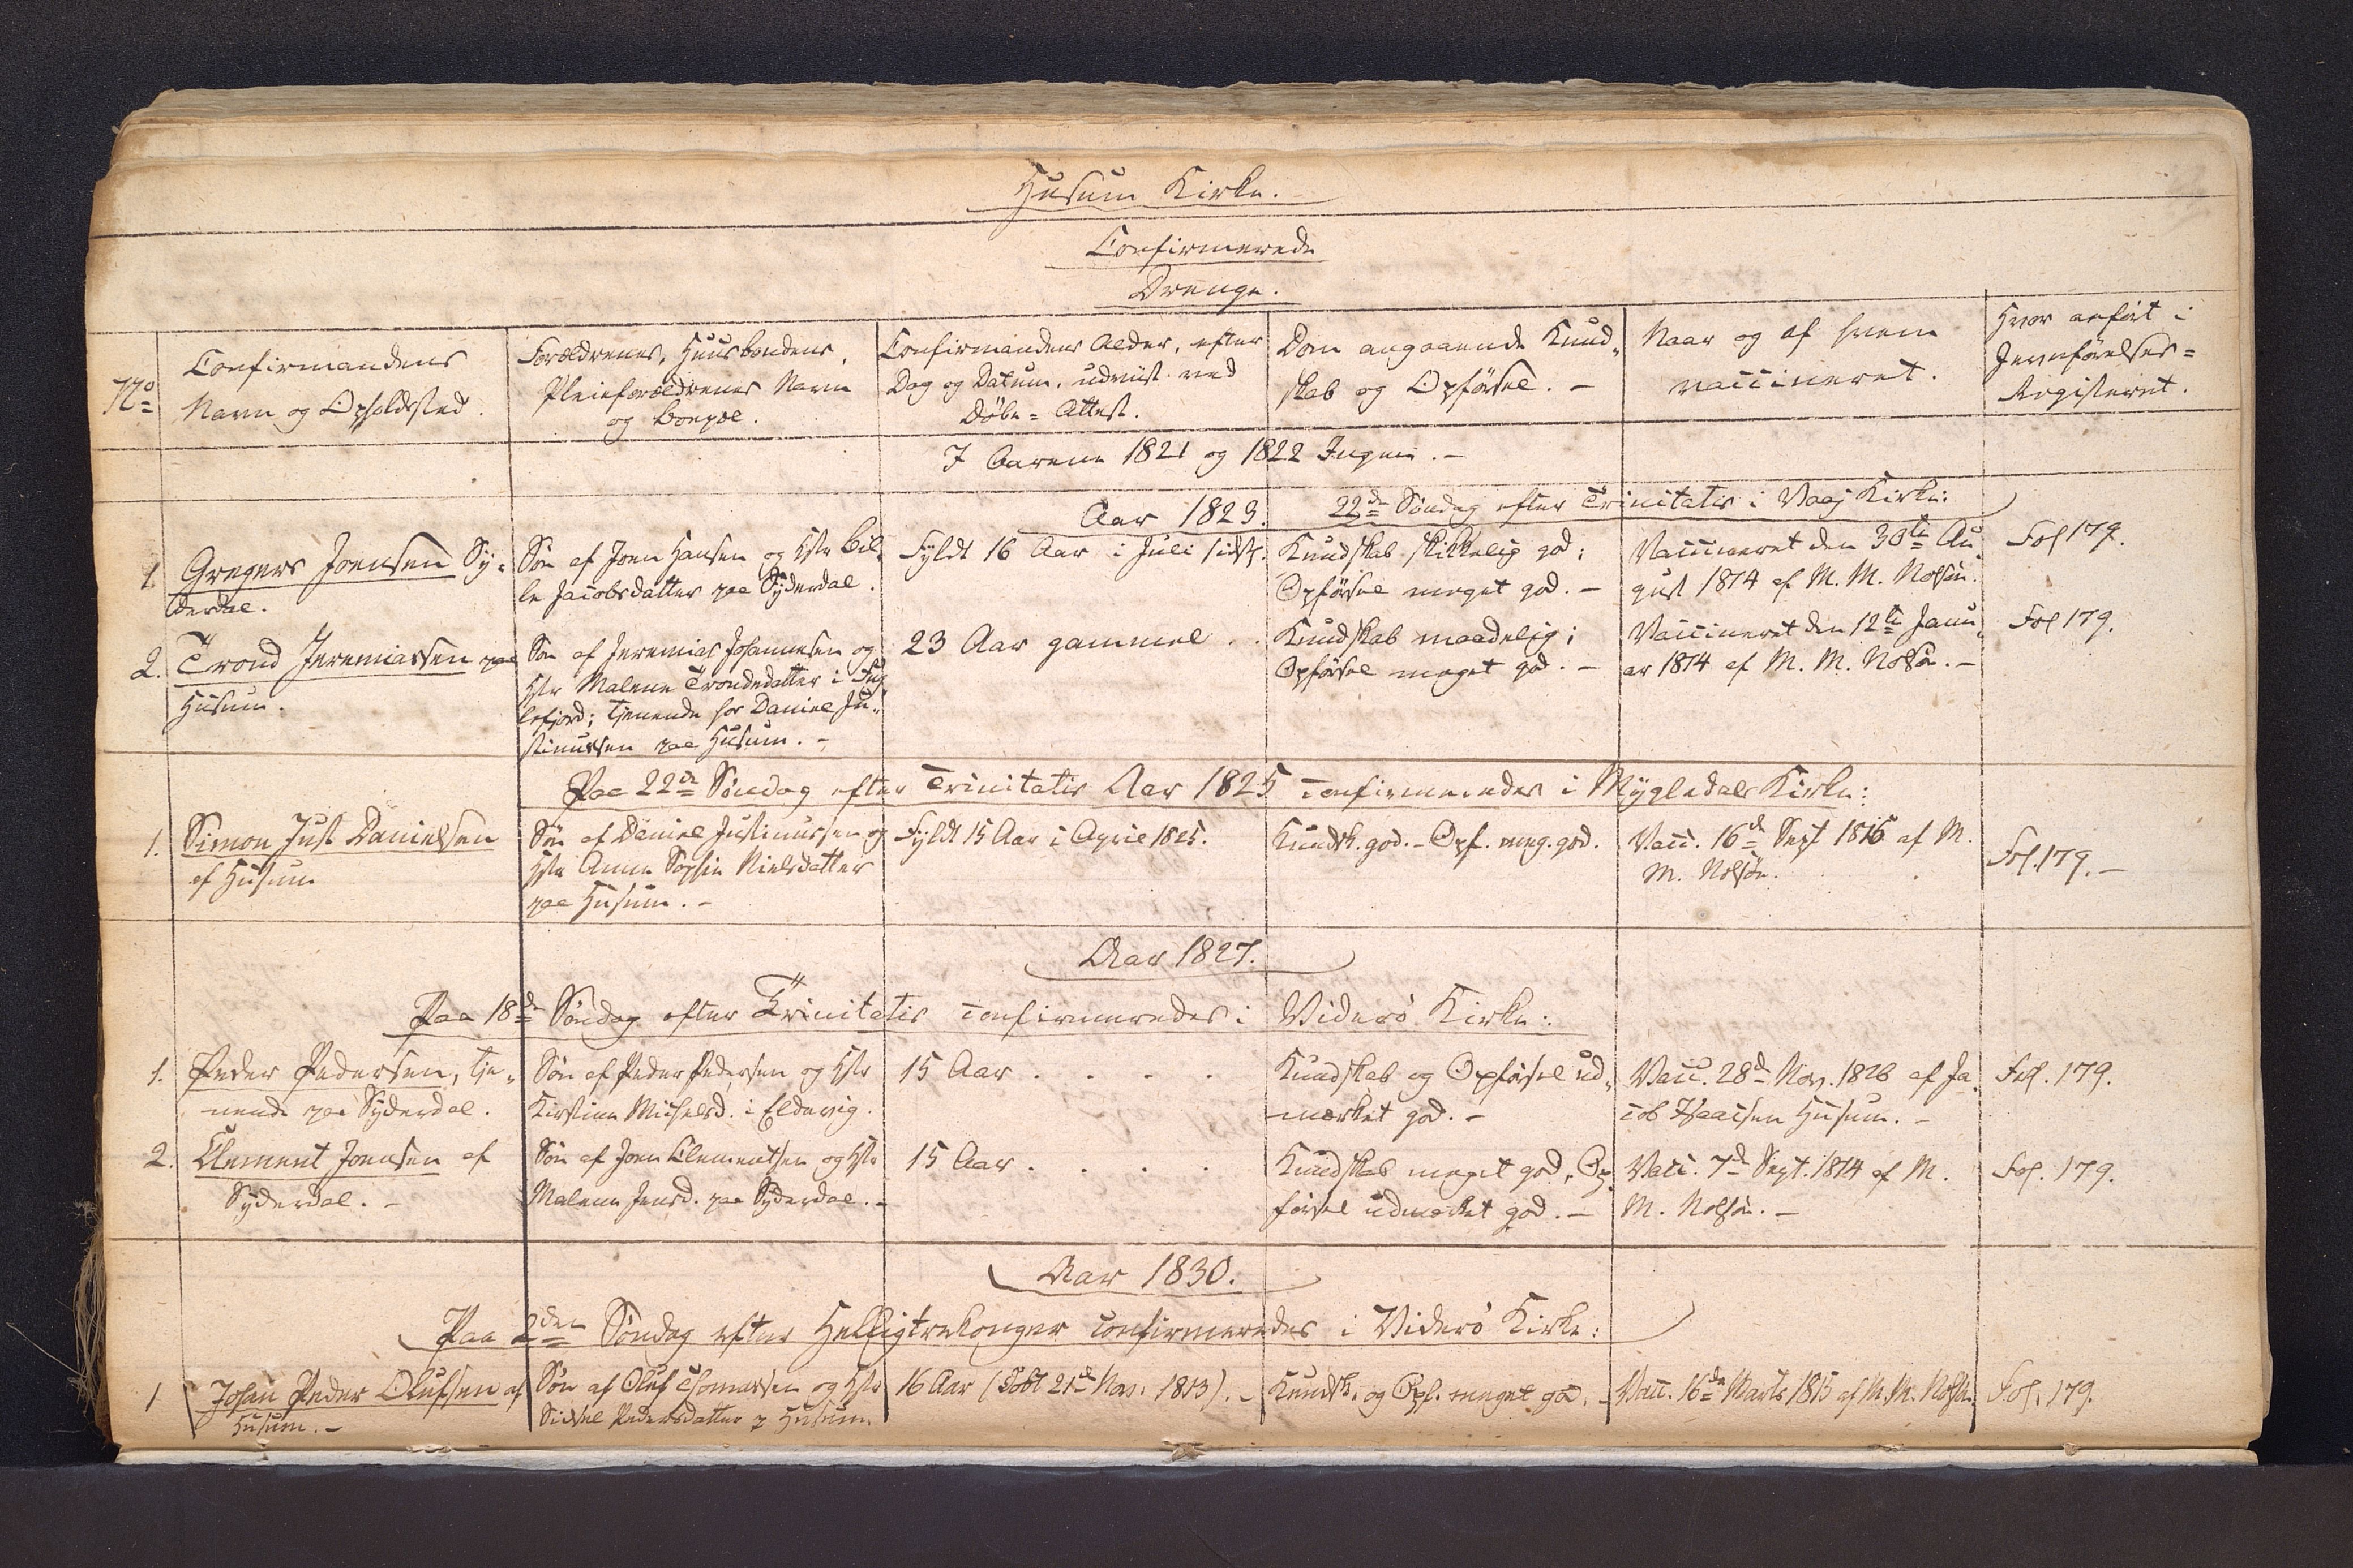 Husum Kirke.
Confirmerede
Drenge.
No
Confirmandens
Navn og Opholdssted.
Forældrenes, Huusbondens,
Pleieforældrenes Navn
og Boepæl.
Confirmandens Alder, efter
Dag og Datum, udviist ved
Döbe=Attest.
Dom angaaende Kund„
skab og Opförsel. -
Naar og af hvem
vaccineret.
Hvor anfört i
Jevnförelses=
Registeret.
I Aarene 1821 og 1822 Ingen. -
Aar 1823. 22de Söndag efter Trinitatis i Vaaj Kirke:
1. Gregers Joensen Sy„
derdal.
Sön af Joen Hansen og Hstr Bil„
le Jacobsdatter paa Syderdal.
Fyldt 16 Aar i Juli sidstl.
Kundskab skikkelig god;
Opförsel meget god. -
Vaccineret den 30te Au„
gust 1814 af M. M. Nolsöe.
Fol 179.
2. Trond Jeremiassen paa
Husum.
Sön af Jeremias Johannesen og
Hstr Malene Trondedatter i Fug„
lefjord; tjenende hos Daniel Ju„
stinussen paa Husum. -
23 Aar gammel . .
Kundskab maadelig;
Opförsel meget god. -
Vaccineret den 12te Janu„
ar 1814 af M. M. Nolsöe. -
Fol 179.
Paa 22de Söndag efter Trinitatis Aar 1825 confirmeredes i Mygledals Kirke:
1. Simon Just Danielsen
af Husum
Sön af Daniel Justinussen og
Hstr Anne Sophie Nielsdatter
paa Husum. -
Fyldt 15 Aar i April 1825.
Kundsk. god. - Opf. meg. god.
Vacc. 16de Sept 1816 af M.
M. Nolsöe.
Fol. 179. -
Aar 1827.
Paa 18de Söndag efter Trinitatis confirmeredes i Viderö Kirke:
1. Peder Pedersen, tje„
nende paa Syderdal.
Sön af Peder Pedersen og Hstr
Kirstine Michelsd. i Eldevig.
15 Aar . . . .
Kundskab og Opförsel ud„
mærket god. -
Vacc. 28de Nov. 1826 af Ja„
cob Isacsen Husum. -
Fol. 179.
2. Clement Joensen af
Syderdal. -
Sön af Joen Clementsen og Hstr
Malene Jensd. paa Syderdal. -
15 Aar . . . .
Kundskab meget god, Op„
försel udmærket god. -
Vacc. 7de Sept. 1814 af M.
M. Nolsöe. -
Fol. 179.
Aar 1830.
Paa 2den Söndag efter Helligtrekonger confirmeredes i Viderö Kirke:
1 Johan Peder Olufsen af
Husum. -
Sön af Oluf Thomassen og Hstr
Sidsel Pedersdatter p Husum
16 Aar (Döbt 21de Nov. 1813). -
Kundsk. og Opf. meget god. -
Vacc. 16de Marts 1815 af M. M. Nolsöe.
Fol. 179.